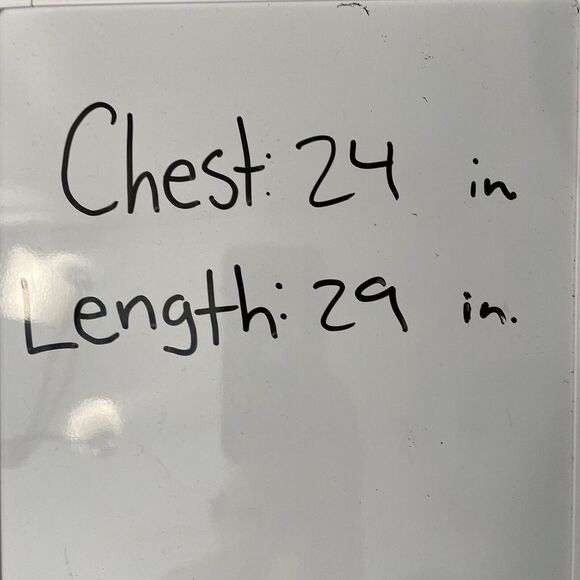 Chest: 24 in
Length: 29 in.